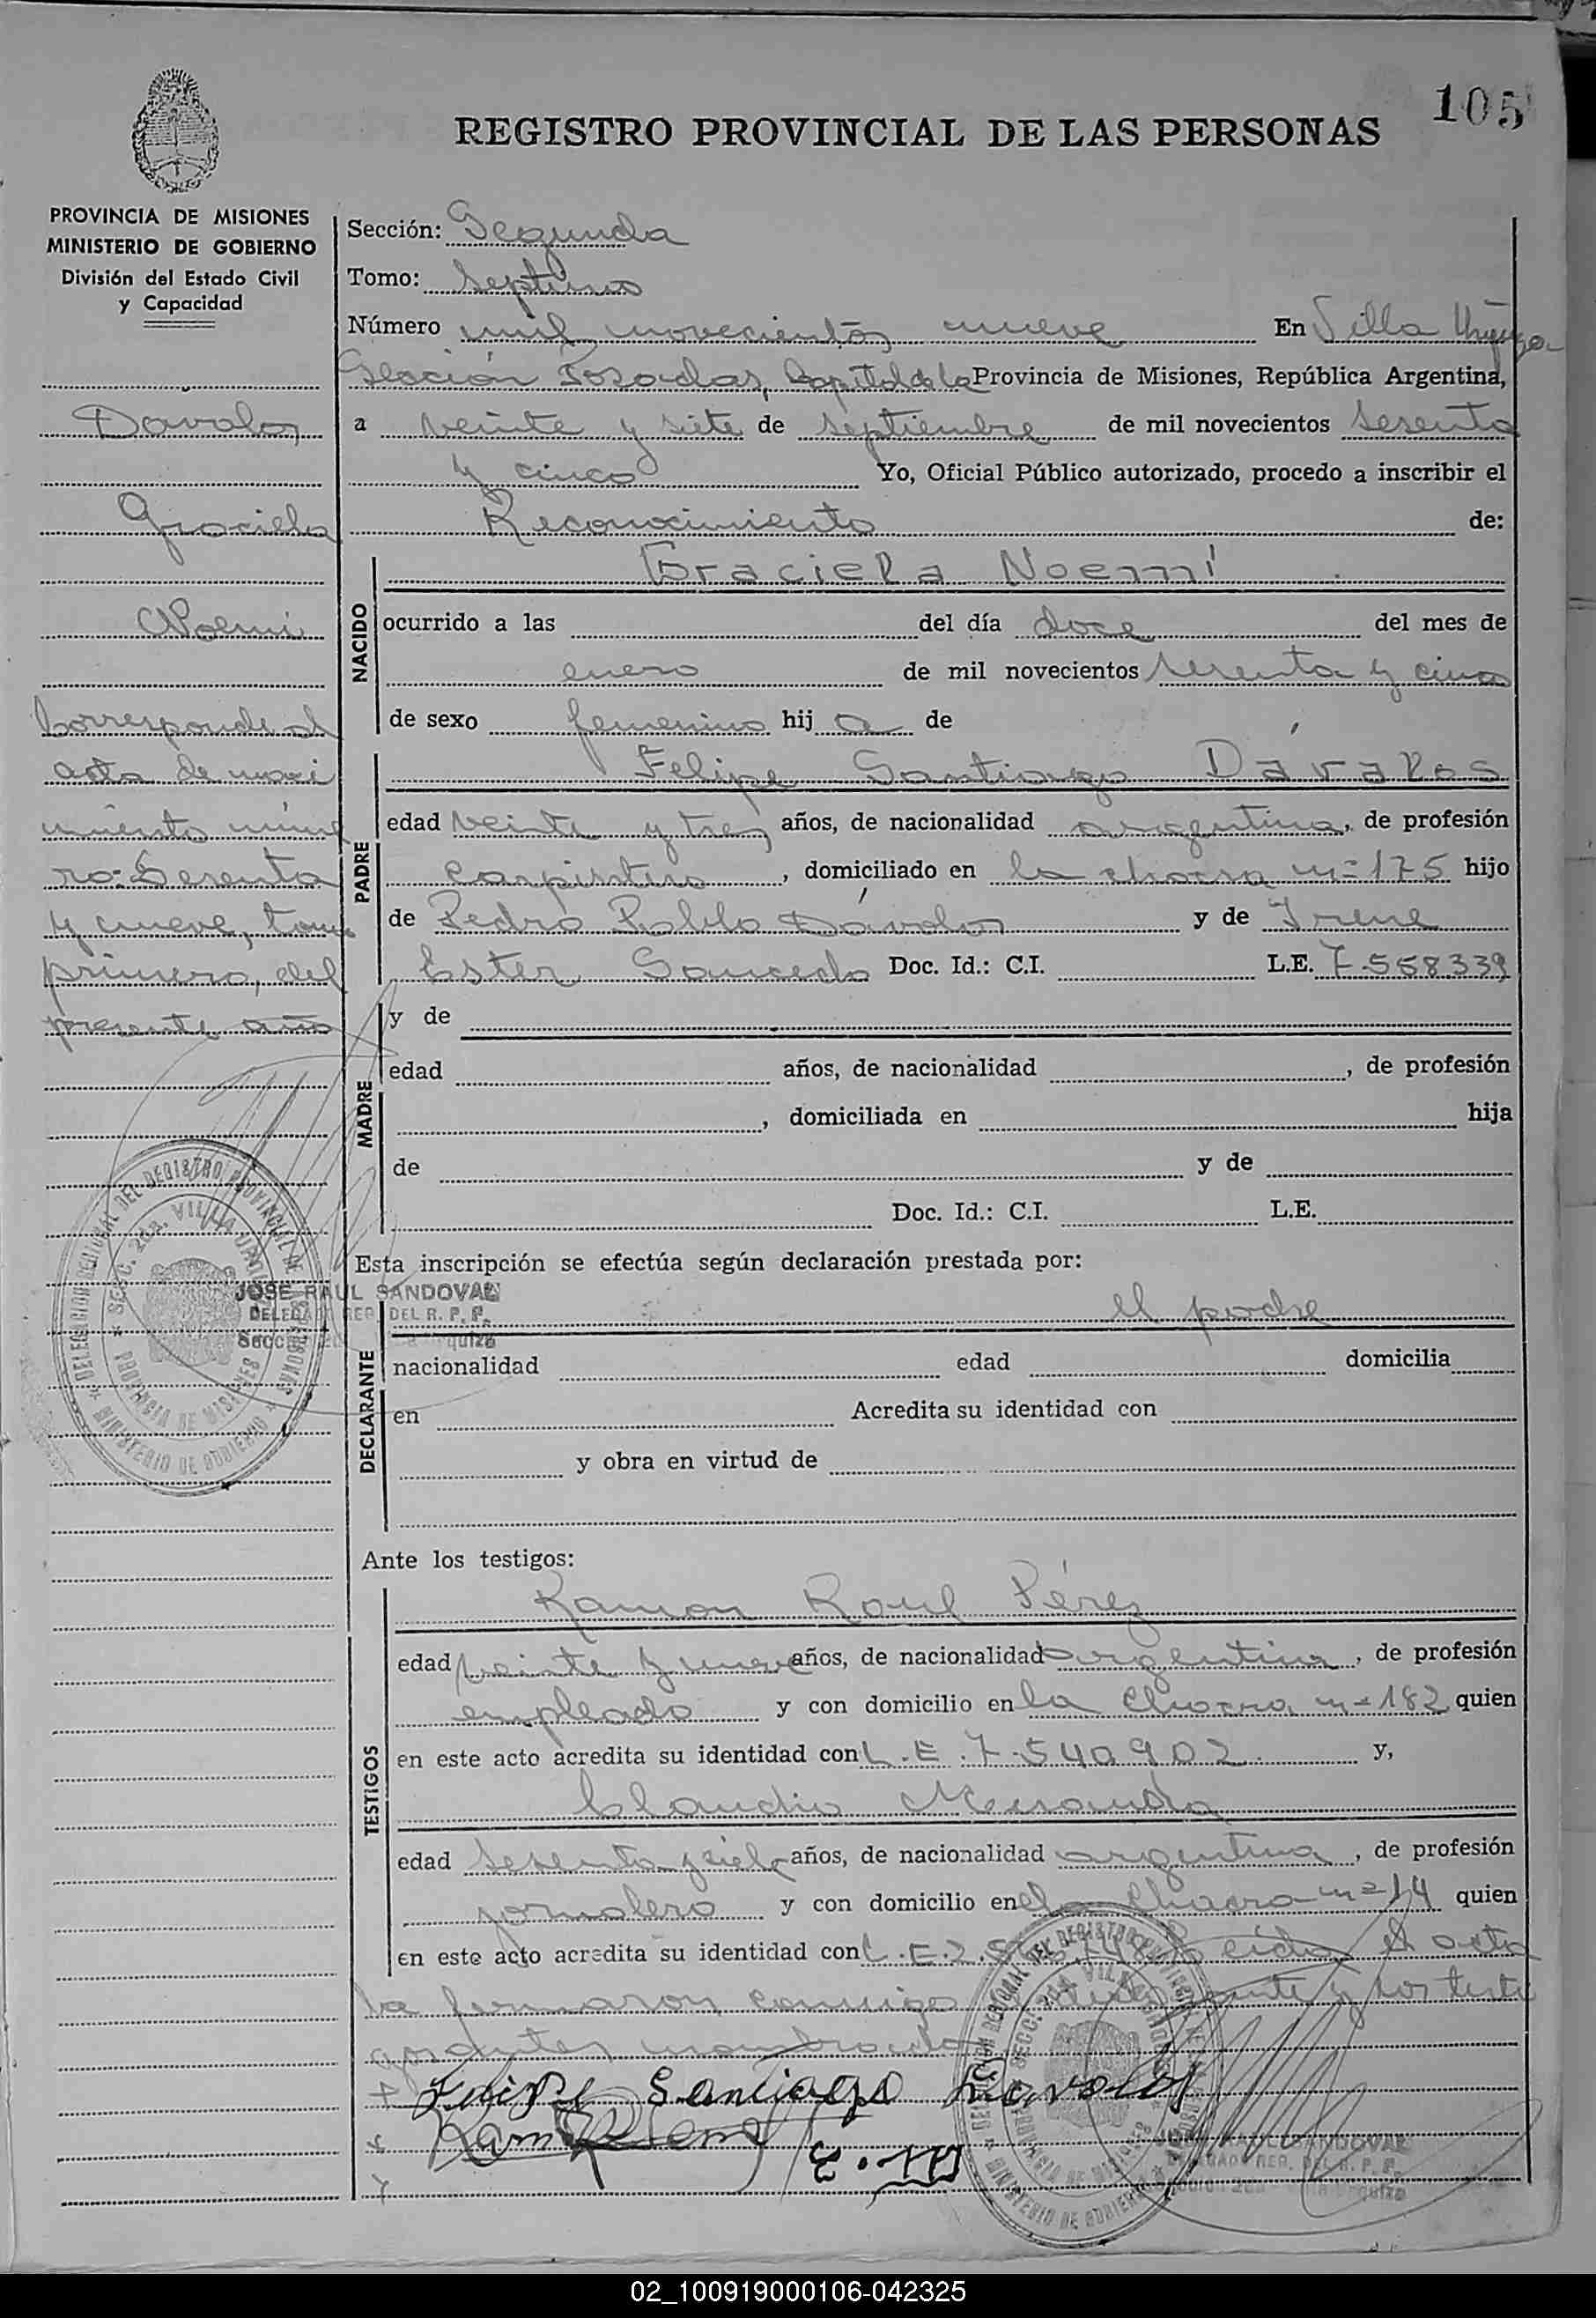 105
REGISTRO PROVINCIAL DE LAS PERSONAS
PROVINCIA DE MISIONES
MINISTERIO DE GOBIERNO
División del Estado Civil
y Capacidad
Davalos
Graciela
Noemi
Corresponde al
acta de naci
miento núme
ro: Sesenta
y nueve, tomo
primero, del
presente año
Sección: Segunda
Tomo: Septimo
Número mil novecientos nueve En Villa Urquiza
Sección Posadas, Capital de la Provincia de Misiones, República Argentina,
a veinte y siete de septiembre de mil novecientos sesenta
y cinco Yo, Oficial Público autorizado, procedo a inscribir el
Reconocimiento de:
NACIDO
Graciela Noemí
ocurrido a las del día doce del mes de
enero de mil novecientos sesenta y cinco
de sexo femenino hija de
PADRE
Felipe Santiago Dávalos
edad veinte y tres años, de nacionalidad argentina, de profesión
carpintero, domiciliado en la chacra n=175 hijo
de Pedro Pablo Dávalos y de Irene
Ester Saucedo Doc. Id.: C.I. L.E. 7.558.339
MADRE
y de
edad años, de nacionalidad , de profesión
, domiciliada en hija
de y de
Doc. Id.: C.I. L.E.
Esta inscripción se efectúa según declaración prestada por:
el padre
DECLARANTE
nacionalidad edad domicilia
en Acredita su identidad con
y obra en virtud de
Ante los testigos:
TESTIGOS
Ramon Raul Pérez
edad veinte y nueve años, de nacionalidad argentina, de profesión
empleado y con domicilio en la Chacra n=182 quien
en este acto acredita su identidad con L.E. 7.540.902. y,
Claudio Miranda
edad sesenta y años, de nacionalidad argentina, de profesión
jornalero y con domicilio en la Chacra n=14 quien
en este acto acredita su identidad con L.E. 2. el acta
la firmaron conmigo y los testi
Felipe Santiago Davalos
DELEGACION REGIONAL DEL REGISTRO PROVINCIAL DE LAS PERSONAS
SECC. 2da. VILLA URQUIZA
PROVINCIA DE MISIONES
MINISTERIO DE GOBIERNO
JOSE RAUL SANDOVAL
DELEGADO REG. DEL R. P. P.
02_100919000106-042325